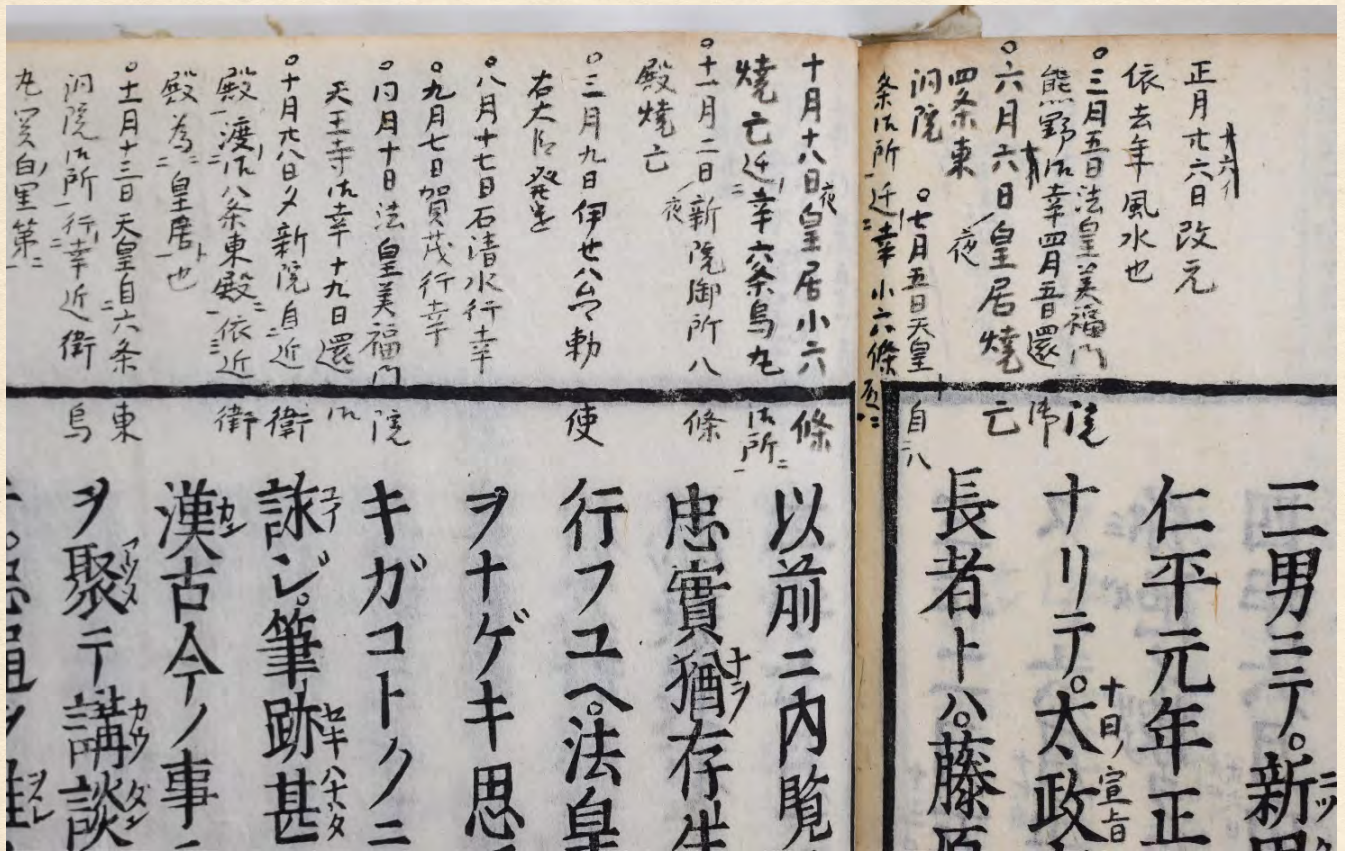 正月廿六日改元
依去年風水也
三月五日法皇美福門院
熊野御幸四月五日還御
六月六日皇居燒亡
四条東
洞院
夜
七月五日天皇自
条御所遷幸小六條
十月十八日夜皇居小六條
燒亡遷幸六条烏丸御所
十一月二日夜新院御所八條
殿燒亡
三月九日伊世
勅使
右大臣
八月十七日石清水行幸
九月七日賀茂行幸
同月十日法皇美福門院
天王寺御幸十九日還御
十月廿八日夕新院自近衛
殿渡御八条東殿依近衛
殿為皇居也
十一月十三日天皇自六条東
洞院御所行幸近衛烏
三男ニテ。新
仁平元年正
ナリテ。太政
十日ノ宣旨
長者トハ。藤原
以前ニ内覧
忠實猶存生
行フユヘ。法皇
ヲナゲキ思
キガコトクニ
詠ジ。筆跡甚
漢古今ノ事
ヲ聚テ講談